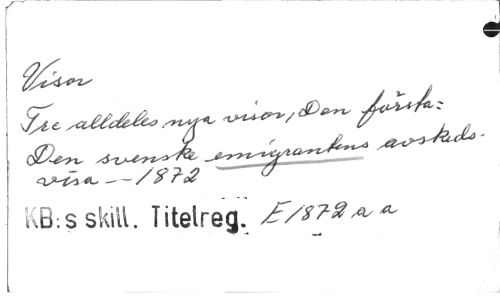 Visor
Tre alldeles nya visor, Den första:
Den svenske emigrantens avskeds-
visa -- 1872
KB:s skill. Titelreg. E 1872 a a